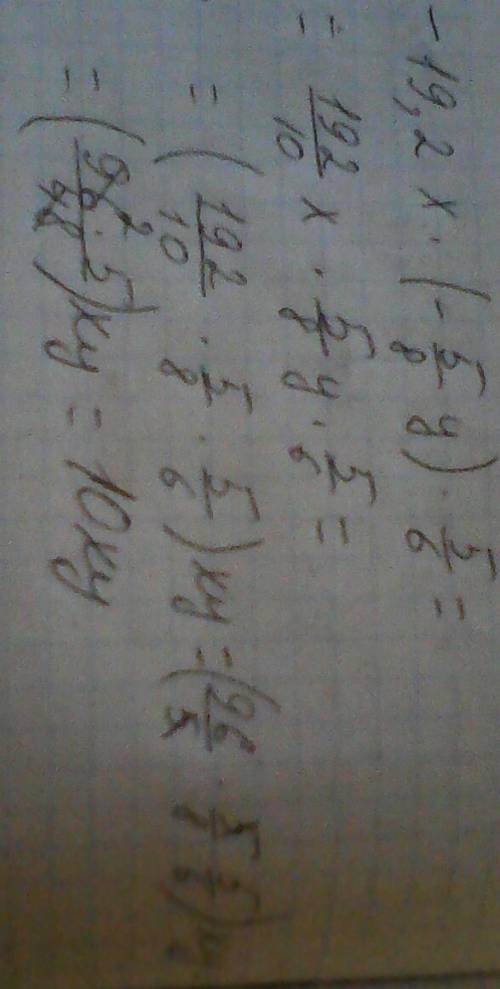 -19,2 x · (-5/8 y) · 5/6 =
= 192/10 x · 5/8 y · 5/6 =
= (192/10 · 5/8 · 5/6) xy = (96/5 · 5/8 · 5/6) xy
= (96 2 · 5/48) xy = 10xy